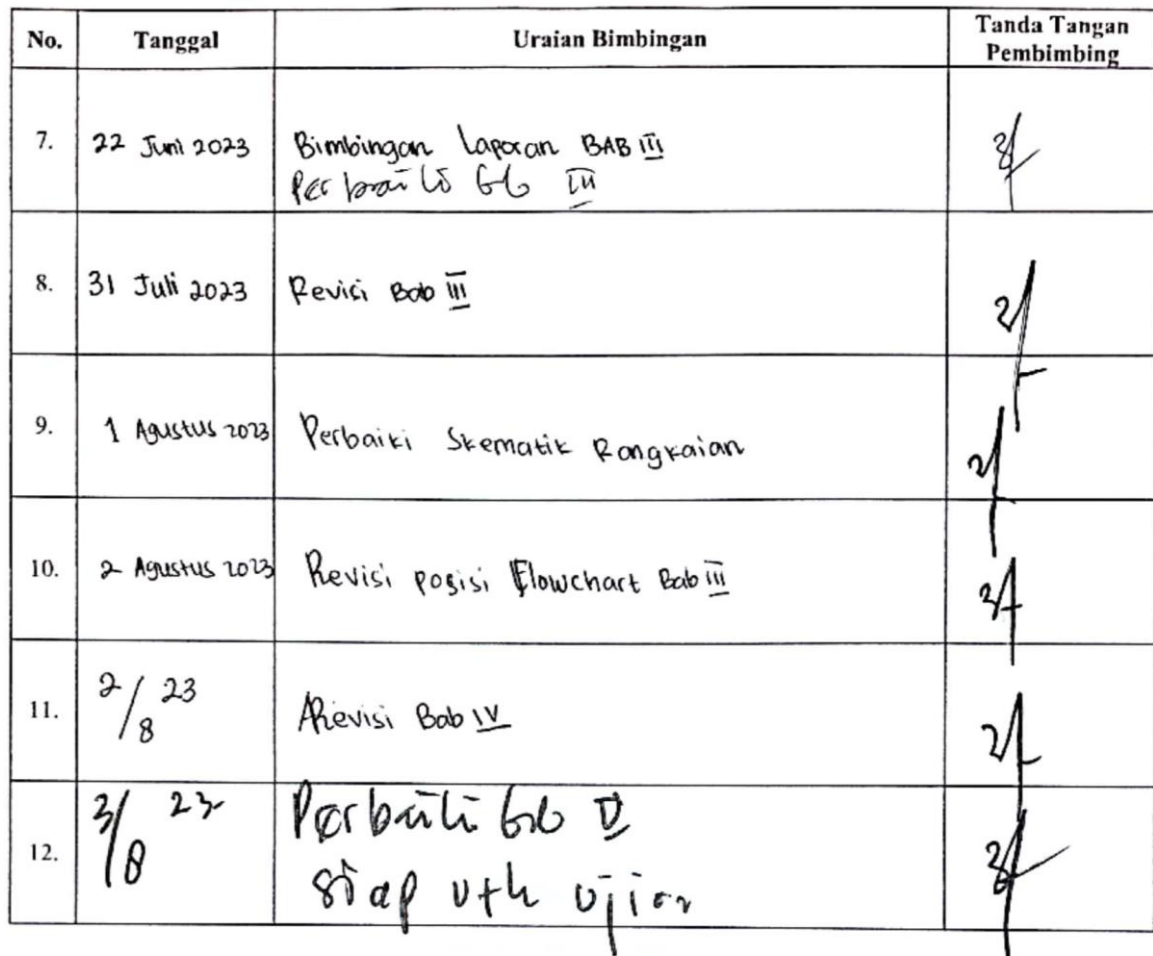 No. Tanggal Uraian Bimbingan Tanda Tangan
Pembimbing
7. 22 Juni 2023 Bimbingan Laporan BAB III
Perbaiki bab III
8. 31 Juli 2023 Revisi Bab III
9. 1 Agustus 2023 Perbaiki Skematik Rangkaian
10. 2 Agustus 2023 Revisi posisi Flowchart Bab III
11. 2/8 23 Revisi Bab IV
12. 3/8 23 Perbaiki bab V
siap utk ujian